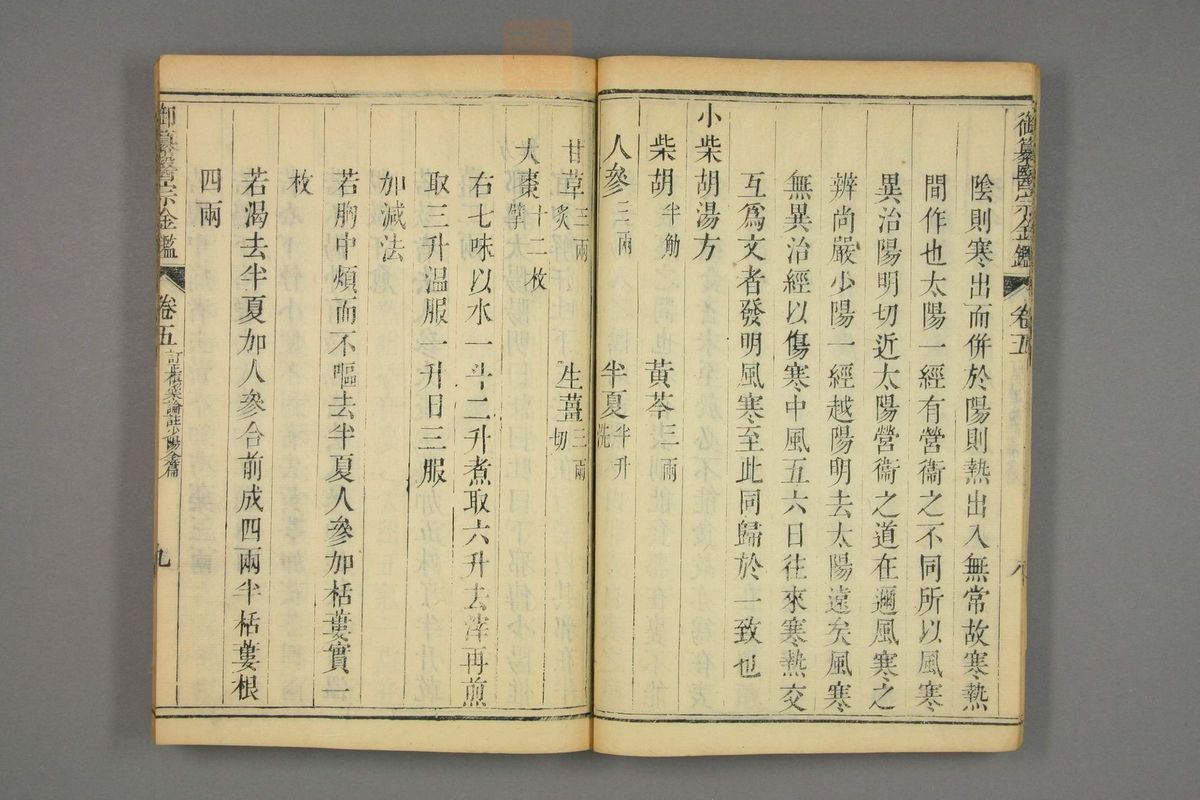 御纂醫宗金鑑
卷五
八
陰則寒出而併於陽則熱出入無常故寒熱
間作也太陽一經有營衞之不同所以風寒
異治陽明切近太陽營衞之道在邇風寒之
辨尚嚴少陽一經越陽明去太陽遠矣風寒
無異治經以傷寒中風五六日往來寒熱交
互爲文者發明風寒至此同歸於一致也
小柴胡湯方
柴胡半觔 黃芩三兩
人參三兩 半夏半升洗
甘草三兩炙 生薑三兩切
大棗十二枚擘
右七味以水一斗二升煮取六升去滓再煎
取三升温服一升日三服
加減法
若胸中煩而不嘔去半夏人參加栝蔞實一
枚
若渴去半夏加人參合前成四兩半栝蔞根
四兩
御纂醫宗金鑑
卷五
訂正傷寒論註少陽全篇
九